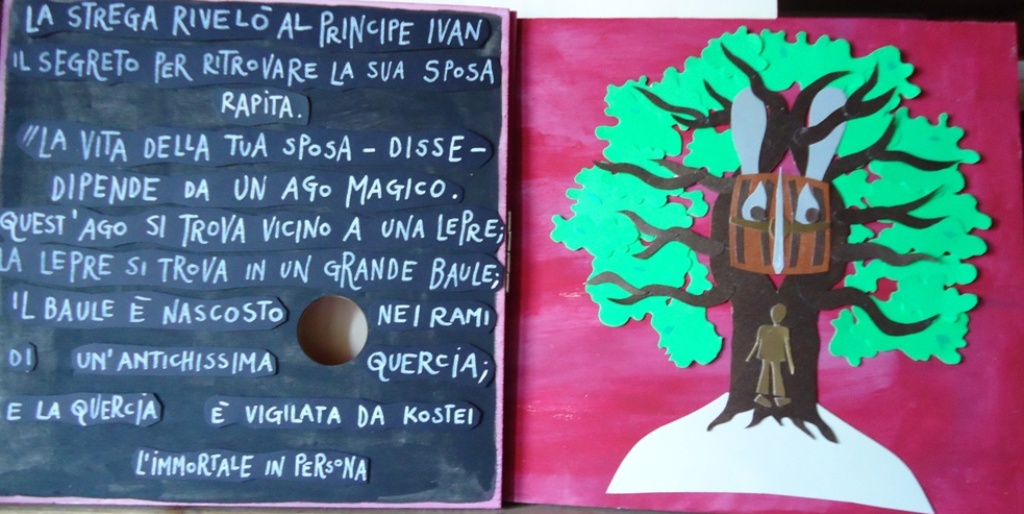 LA STREGA RIVELÒ AL PRINCIPE IVAN
IL SEGRETO PER RITROVARE LA SUA SPOSA
RAPITA.
"LA VITA DELLA TUA SPOSA - DISSE -
DIPENDE DA UN AGO MAGICO.
QUEST'AGO SI TROVA VICINO A UNA LEPRE;
LA LEPRE SI TROVA IN UN GRANDE BAULE;
IL BAULE È NASCOSTO NEI RAMI
DI UN'ANTICHISSIMA QUERCIA;
E LA QUERCIA È VIGILATA DA KOSTEI
L'IMMORTALE IN PERSONA